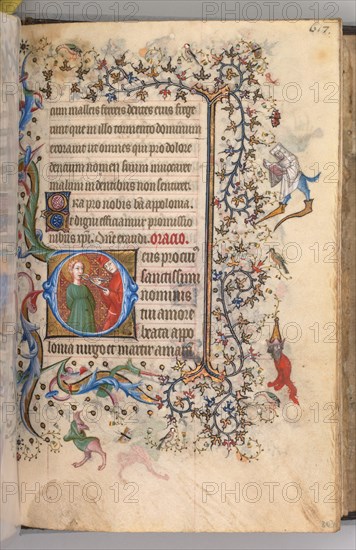 617.
cum malleis ferreis dentes eius frege
runt que in illo tormento dominum
exorauit ut omnes qui pro dolore
dencium nomen suum inuocare
in dentibus non sentiret.
Ora pro nobis bā apolonia.
Vt digni efficiamur promissio
nibus xpi. Dne exaudi. oracō.
Deus pro cuiꝰ
sanctissimi
nominis
tui amore
beata apo
lonia uirgo et martir
PHOTO12
PHOTO12
PHOTO12